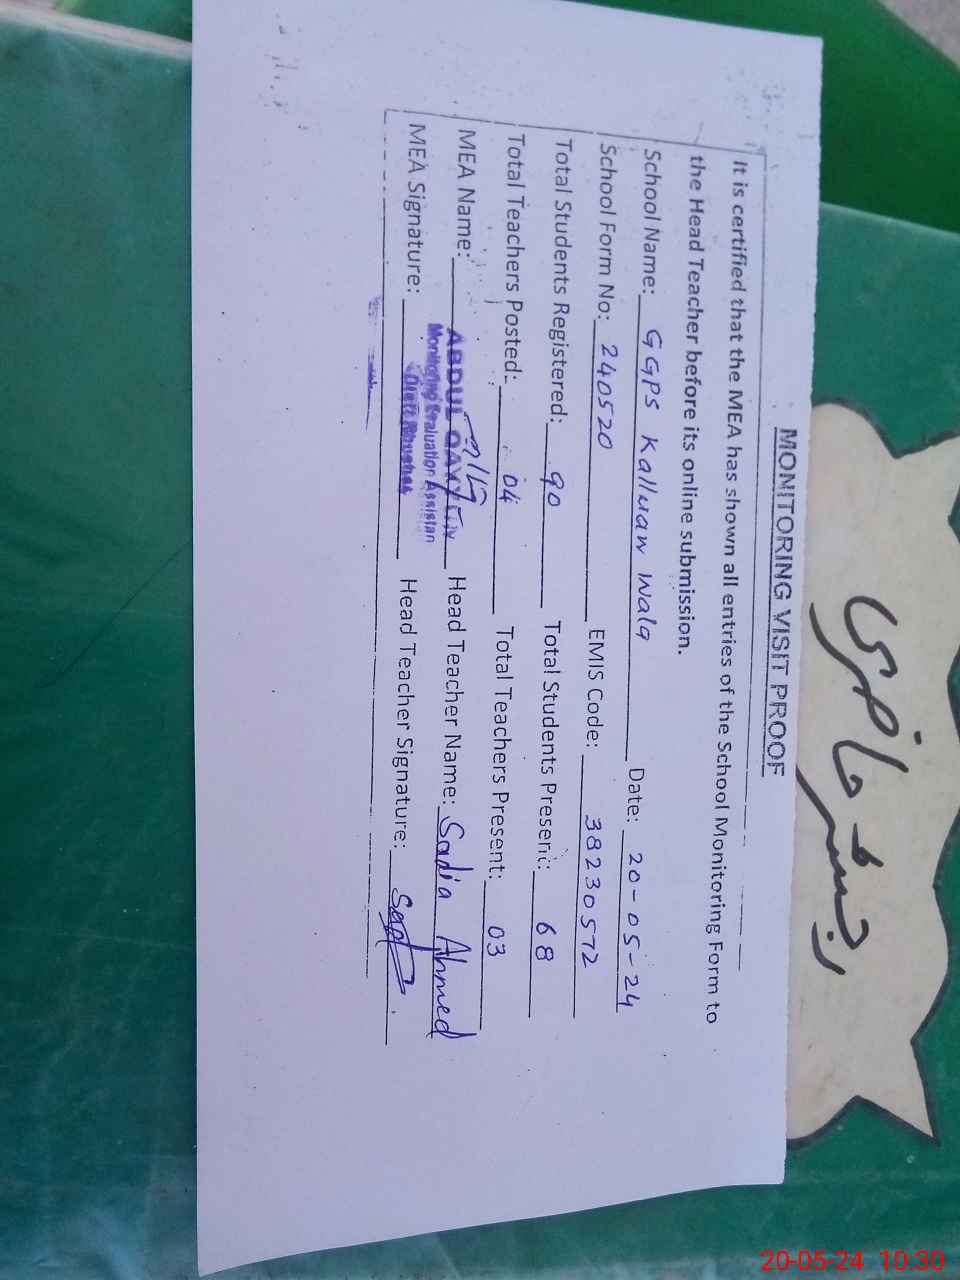 رجسٹر حاضری
MONITORING VISIT PROOF
It is certified that the MEA has shown all entries of the School Monitoring Form to
the Head Teacher before its online submission.
School Name: GGPS Kalluan Wala Date: 20-05-24
School Form No: 240520 EMIS Code: 38230572
Total Students Registered: 90 Total Students Present: 68
Total Teachers Posted: 04 Total Teachers Present: 03
MEA Name: ABDUL QAYYUM Head Teacher Name: Sadia Ahmed
Monitoring Evaluation Assistan
MEA Signature: Head Teacher Signature:
20-05-24 10:30